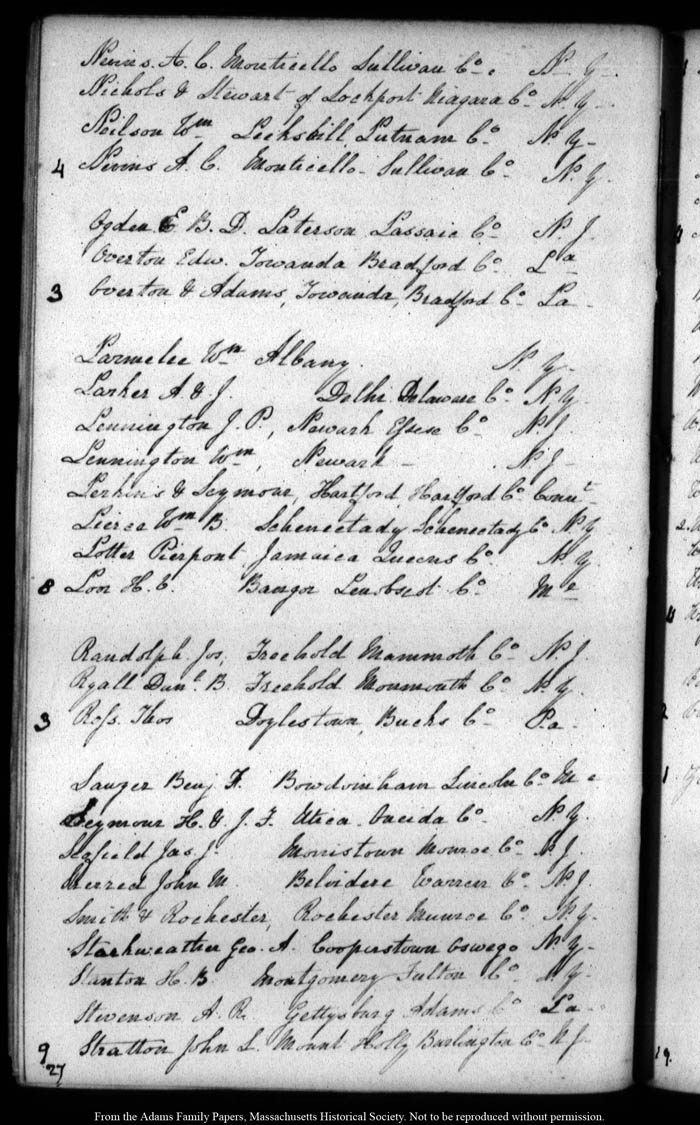 Nevins A. C. Monticello Sullivan Co. N. Y.
Nichols & Stewart of Lockport Niagara Co N. Y.
Neilson Wm Peekskill, Putnam Co N. Y.
4 Nevins A. C. Monticello Sullivan Co N. Y.
Ogden E. B. D. Paterson Passaic Co N. J.
Overton Edw. Towanda Bradford Co Pa
3 Overton & Adams, Towanda, Bradford Co Pa
Parmelee Wm Albany. N. Y.
Parker A & J. Delhi Delaware Co N. Y.
Pennington J. P., Newark Essex Co N. J.
Pennington Wm, Newark N. J.
Perkins & Seymour, Hartford, Hartford Co Connt
Pierce Wm B. Schenectady Schenectady Co N. Y.
Potter Pierpont, Jamaica Queens Co N. Y.
8 Poor H. V. Bangor Penobscot Co Me
Randolph Jos, Freehold Mammoth Co N. J.
Ryall Danl B. Freehold Monmouth Co N. Y.
3 Ross Thos Doylestown, Bucks Co Pa
Sanger Benj F. Bowdoinham Lincoln Co Me
Seymour H. & J. F. Utica Oneida Co N. Y.
Jas J. Morristown Monroe Co N. J.
Sherred John M. Belvidere Warren Co N. J.
Smith & Rochester, Rochester Munroe Co N. Y.
Starkweather Geo. A. Cooperstown Oswego N. Y.
Stanton H. B. Montgomery Fulton Co N. Y.
Stevenson A. R. Gettysburg Adams Co Pa
9 Stratton John L. Mount Holly Burlington Co N. J.
27
19.
From the Adams Family Papers, Massachusetts Historical Society. Not to be reproduced without permission.